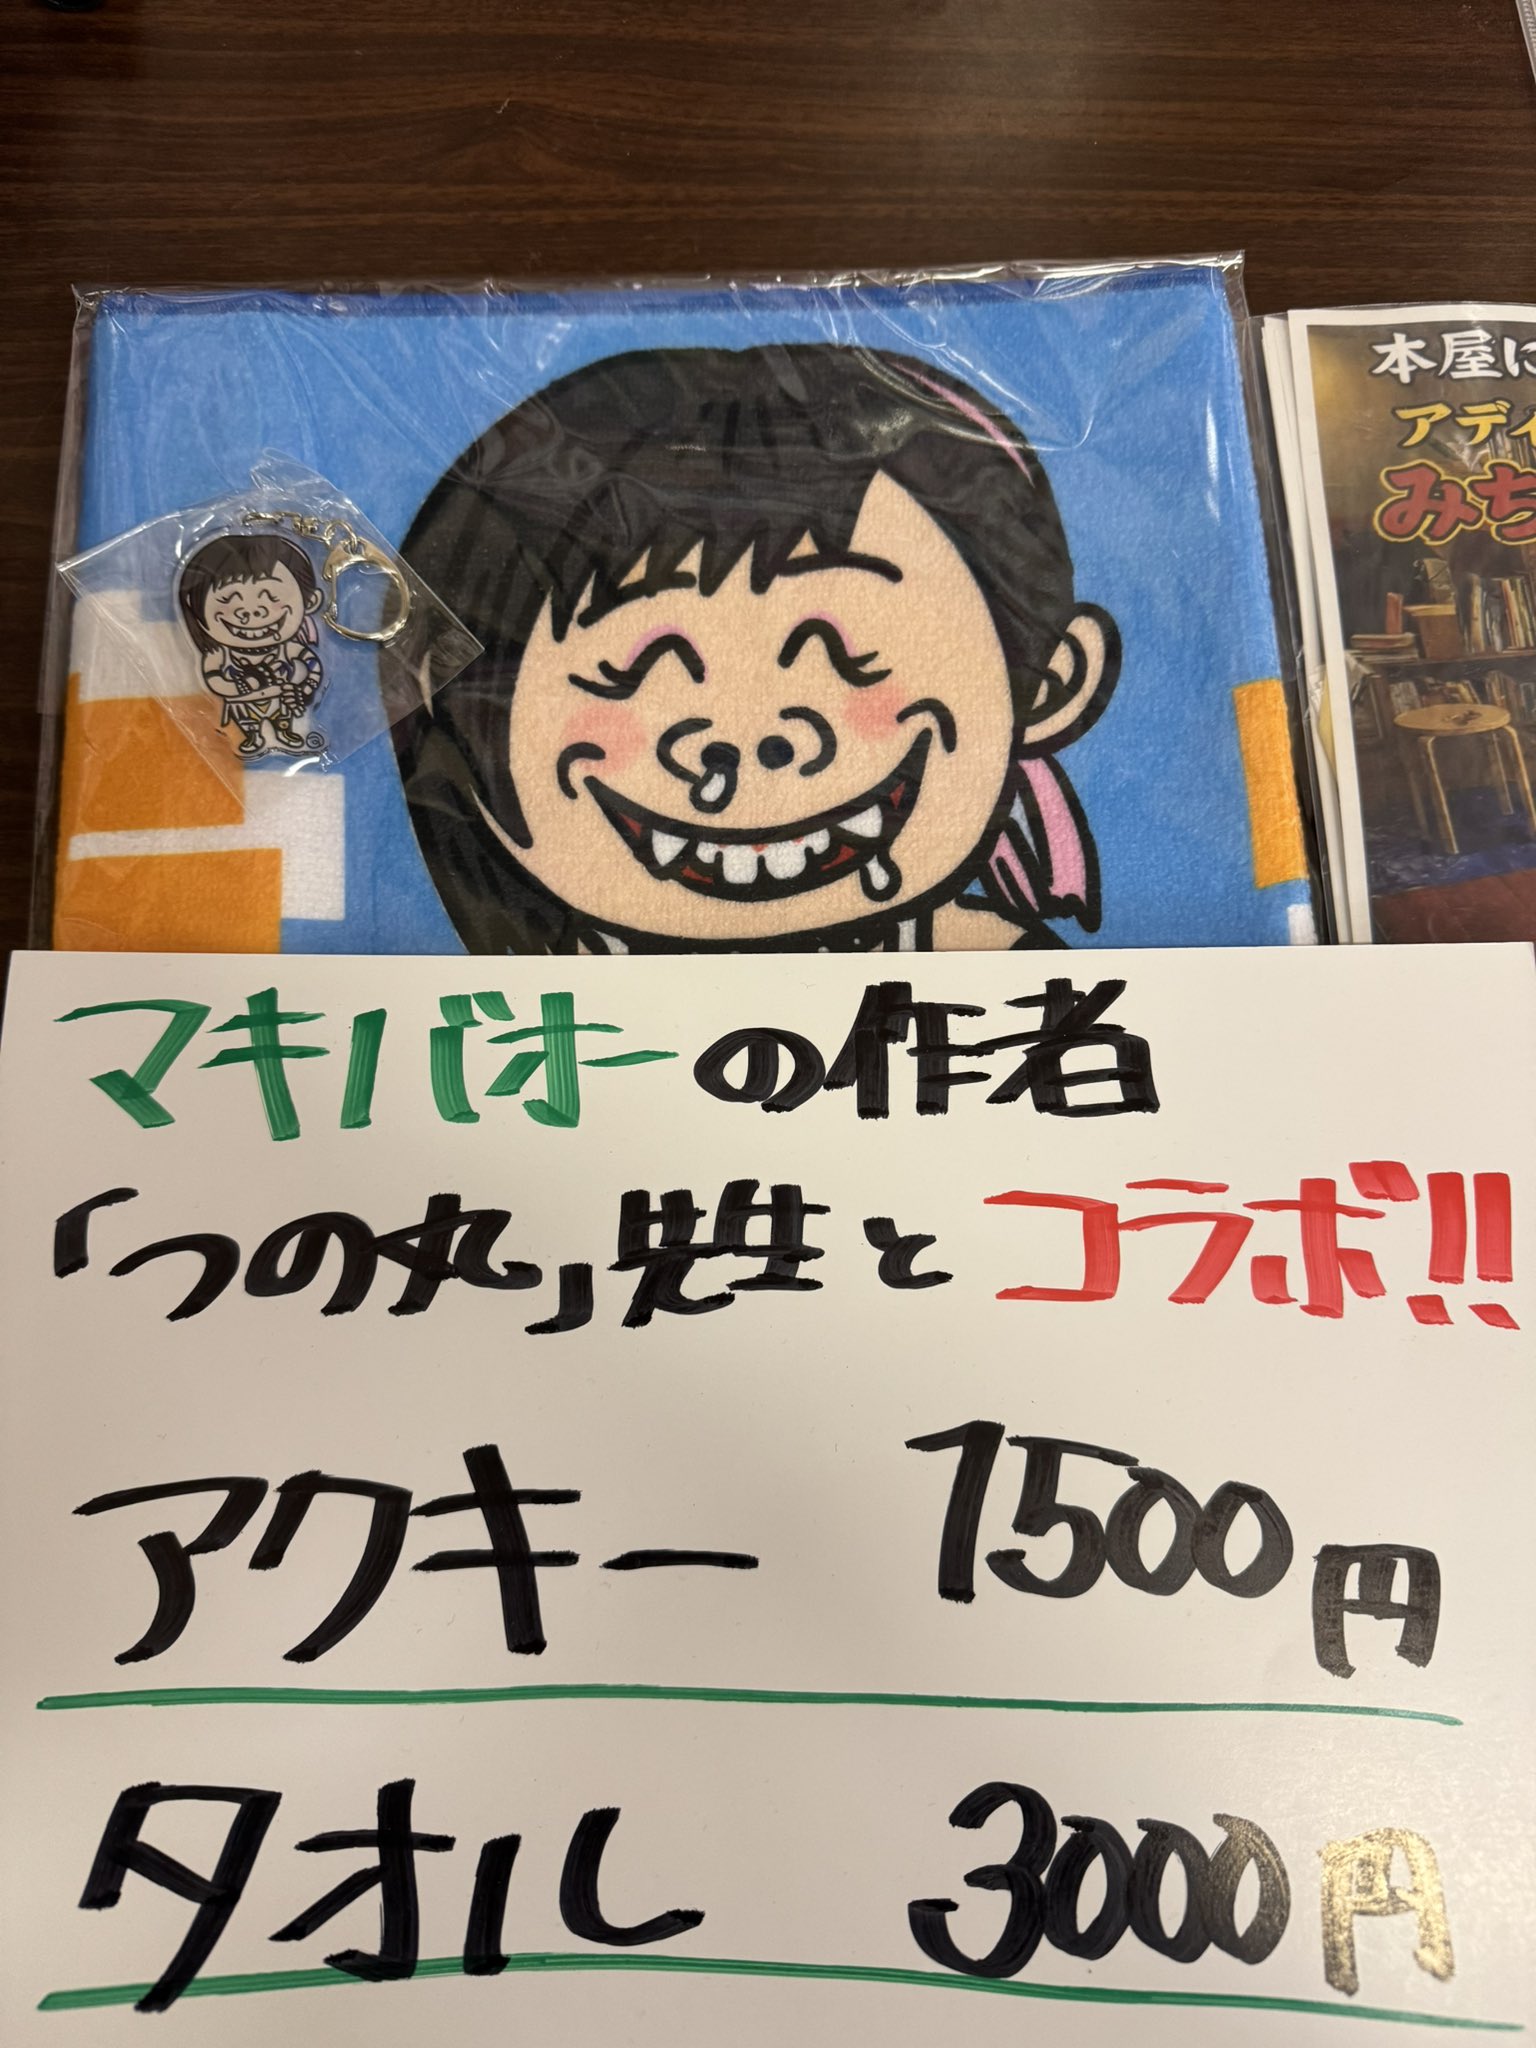 本屋に
アディ
みち
マキバオーの作者
「つの丸」先生とコラボ!!
アクキー 1500円
タオル 3000円